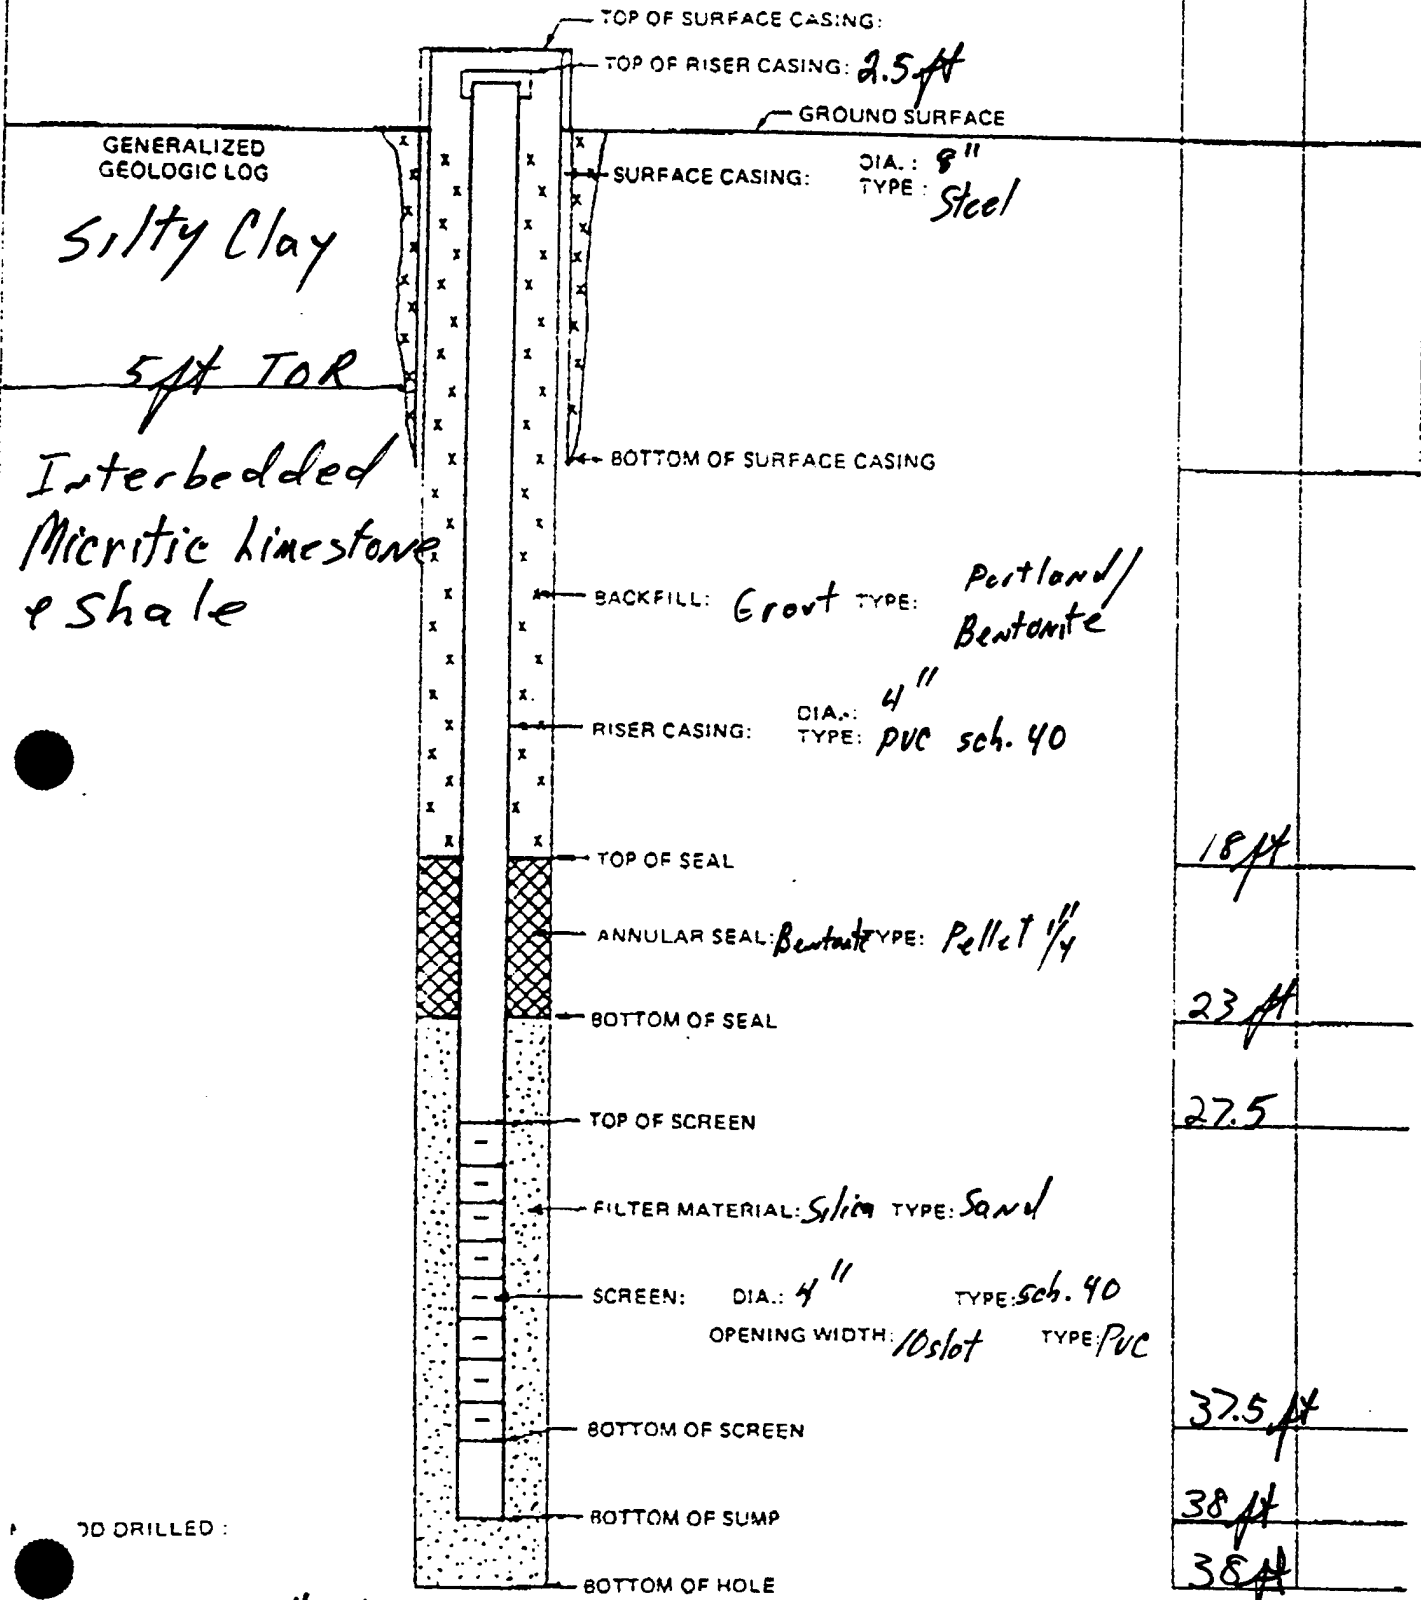 TOP OF SURFACE CASING:
TOP OF RISER CASING: 2.5 ft
GROUND SURFACE
GENERALIZED
GEOLOGIC LOG
SURFACE CASING: DIA.: 8"
TYPE: Steel
Silty Clay
5 ft TOR
BOTTOM OF SURFACE CASING
Interbedded
Micritic Limestone
& Shale
BACKFILL: Grout TYPE: Portland/
Bentonite
RISER CASING: DIA.: 4"
TYPE: PVC sch. 40
TOP OF SEAL 18 ft
ANNULAR SEAL: Bentonite TYPE: Pellet 1/4"
BOTTOM OF SEAL 23 ft
TOP OF SCREEN 27.5
FILTER MATERIAL: Silica TYPE: Sand
SCREEN: DIA.: 4" TYPE: sch. 40
OPENING WIDTH: 10 slot TYPE: PVC
BOTTOM OF SCREEN 37.5 ft
BOTTOM OF SUMP 38 ft
DRILLED:
BOTTOM OF HOLE 38 ft